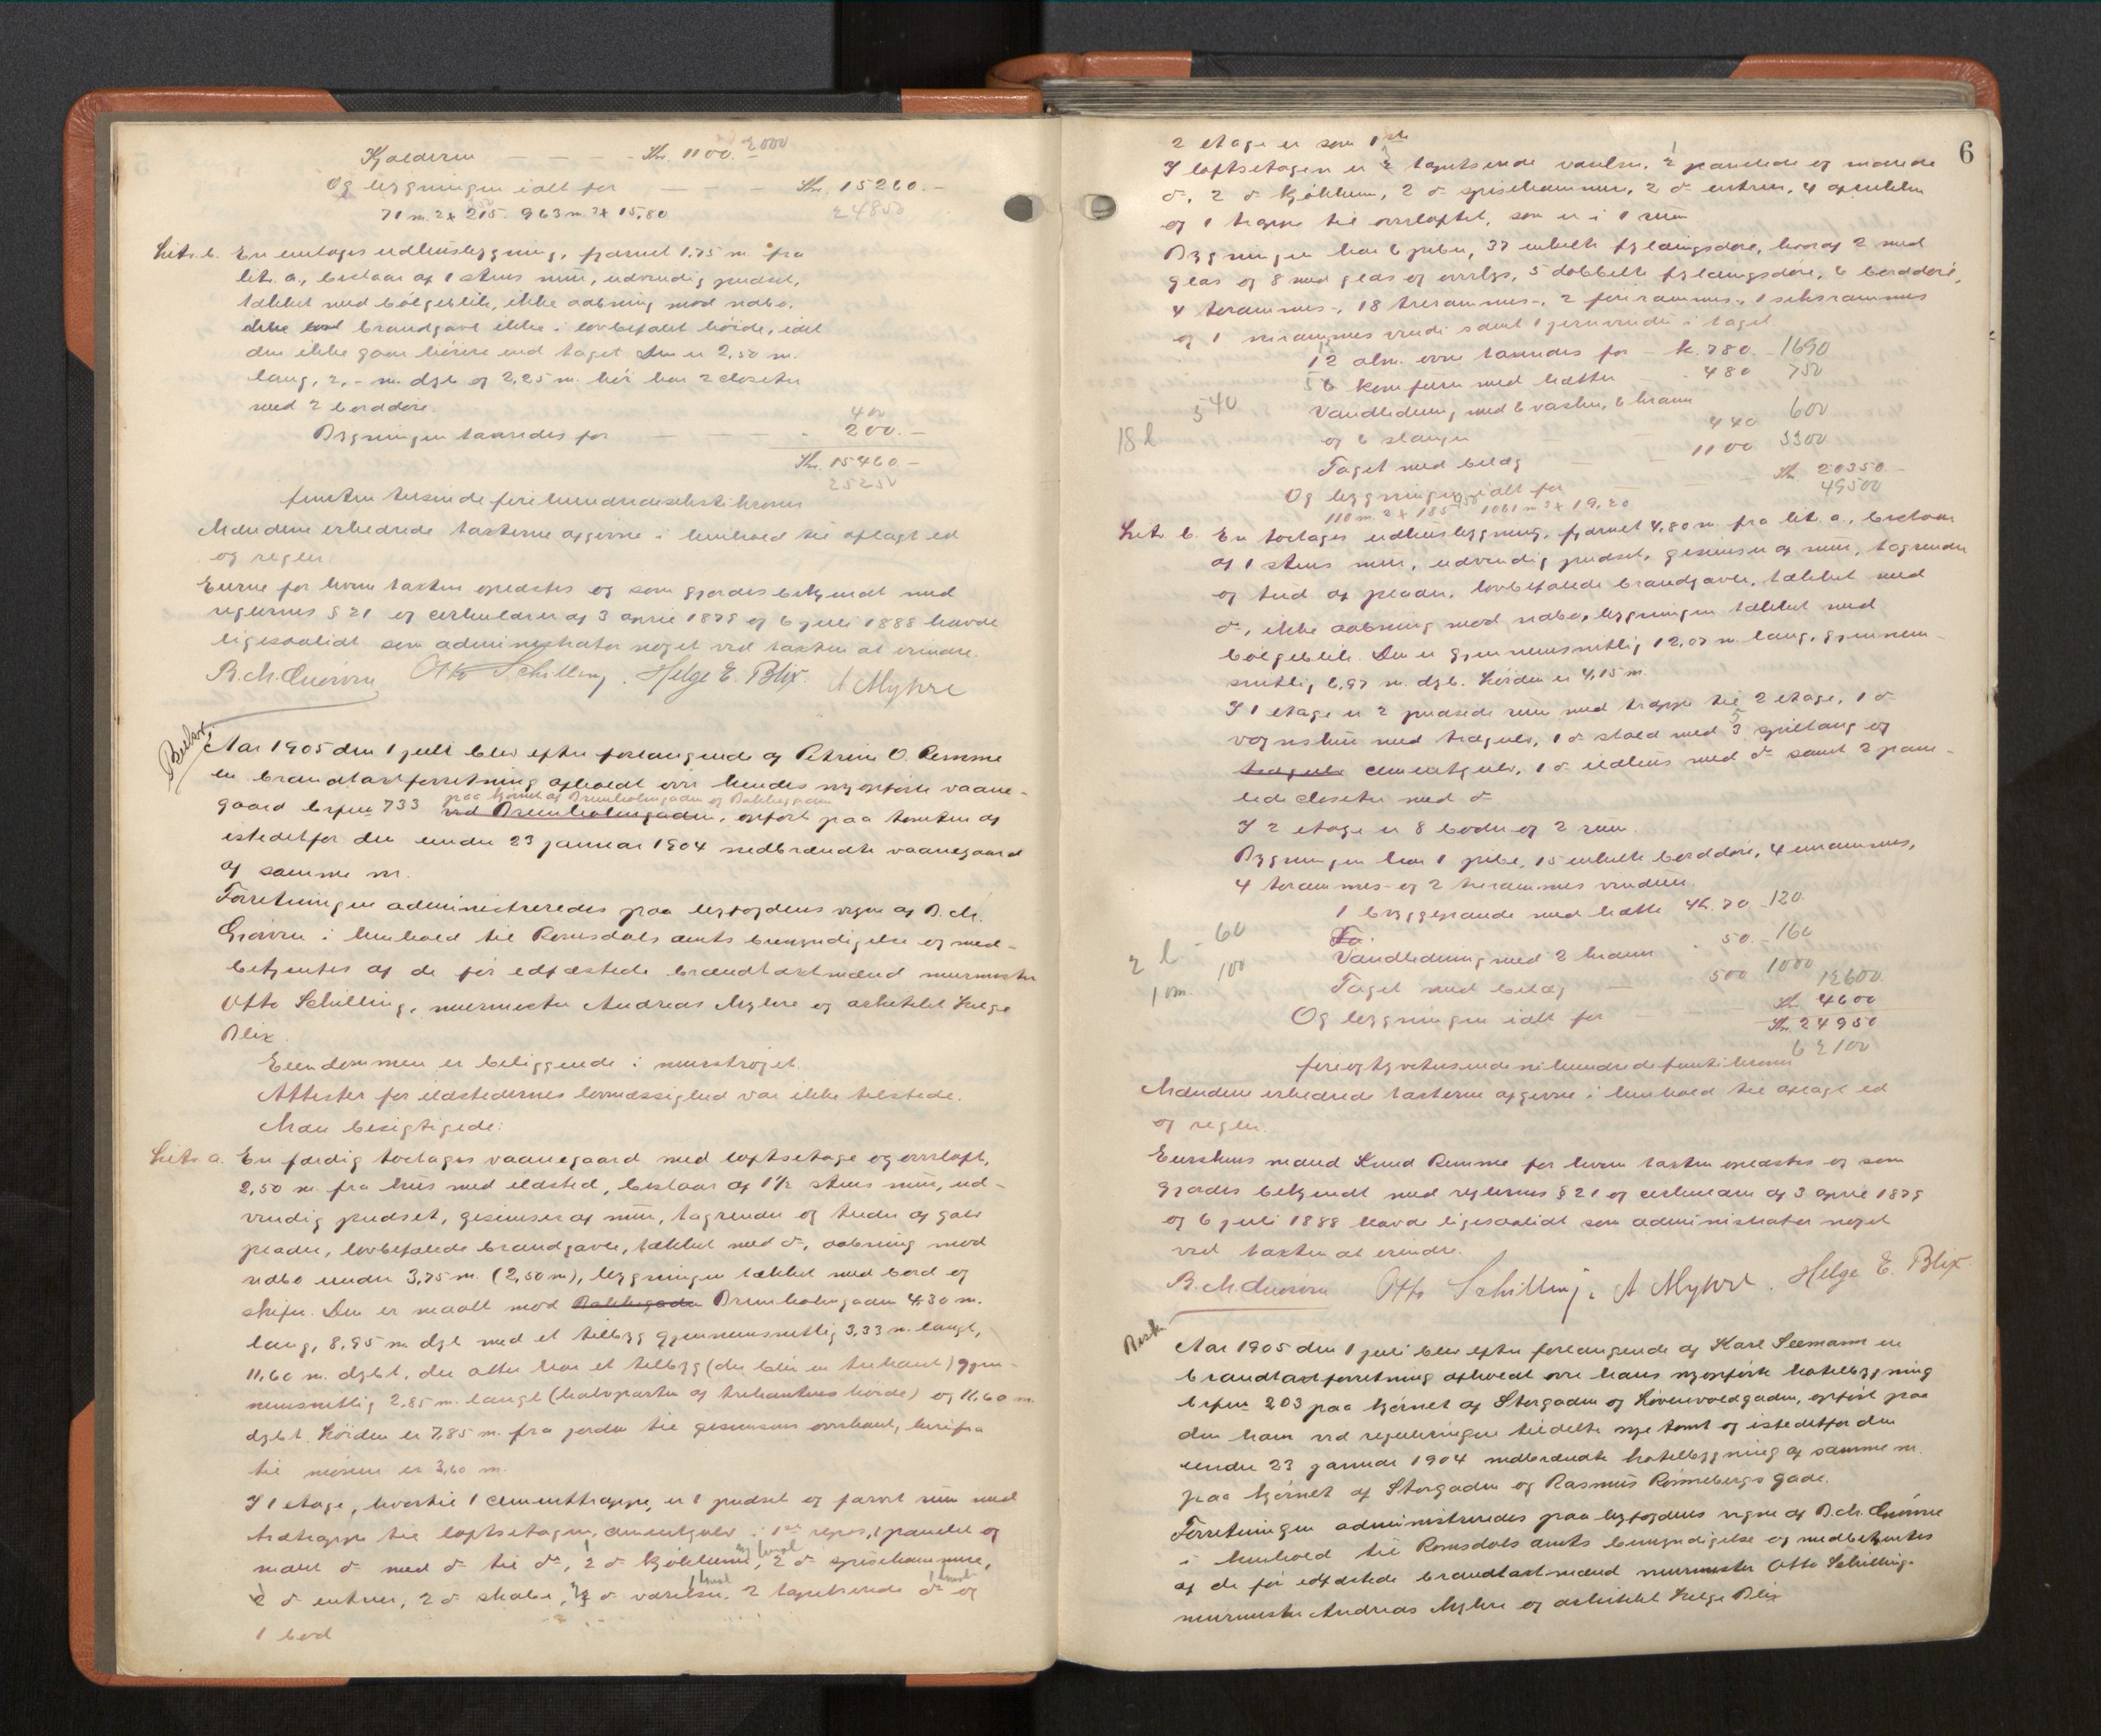 Kjælderen — — — - Kr. 1100.- 2000
Og bygningen ialt for — — — Kr. 15260.-
71 m.² x 215. 963 m.³ x 15,80 24850
Litr. b. En enetages udhusbygning, fjernet 1,75 m. fra
litr. a., bestaar af 1 stens mur, udvendig pudset,
tækket med bølgeblik, ikke aabning mod nabo.
brandgavl ikke i lovbefalet høide, idet
den ikke gaar høiere end taget. Den er 2,50 m.
lang, 2,- m. dyb og 2,25 m. høi har 2 closeter
med 2 borddøre.
400
Bygningen taxeredes for — — — - 200.-
Kr. 15460-
25250
femten tusinde fire hundrede seksti kroner
Mændene erklærede taxterne afgivne i henhold til aflagt ed
og regler.
Eierne for hvem taxten oplæstes og som gjordes bekjendt med
reglernes § 21 og cirkulærer af 3 april 1879 og 6 juli 1888 havde
ligesaalidt som administrator noget ved taxten at erindre.
Otto Schilling. Helge E. Blix. A Myhre
Aar 1905 den 1 juli blev efter forlangende af Petrine O. Remme
en brandtaxtforretning afholdt over hendes nyopførte vaane-
paa hjørnet af Brunholmgaden og Bakkegaden
gaard brfn. 733 ved Brunholmgaden, opført paa tomten af
istedetfor den under 23 januar 1904 nedbrændte vaanegaard
af samme nr.
Forretningen administreredes paa byfogdens vegne af B. M.
i henhold til Romsdals amts bemyndigelse og med-
betjentes af de før edfæstede brandtaxtmænd murmester
Otto Schilling, murmester Andreas Myhre og arkitekt Helge
Blix.
Eiendommen er beliggende i murstrøget.
Attester for ildstedernes lovmæssighed var ikke tilstede.
Man besigtigede:
Litr. a. En færdig toetages vaanegaard med loftsetage og overloft,
2,50 m. fra hus med ildsted, bestaar af 1½ stens mur, ud-
vendig pudset, gesimser af mur, tagrender og tuder af galv.
plader, lovbefalede brandgavle, tækket med do, aabning mod
nabo under 3,75 m. (2,50 m), bygningen tækket med bord og
skifer. Den er maalt mod Bakkegaden Brunholmgaden 4,30 m.
lang, 8,95 m. dyb med et tilbyg gjennemsnitlig 3,33 m. langt,
11,60 m. dybt, der atter har et tilbyg (der blir en trekant) gjen-
nemsnitlig 2,85 m. langt (halvparten af trekantens høide) og 11,60 m.
dybt. Høiden er 7,85 m. fra jorden til gesimsens overkant, herifra
til mønen er 3,60 m.
I 1 etage, hvortil 1 cementtrappe, er 1 pudset og farvet rum med
trætrappe til loftsetagen, cementgulv i 1ste repos, 1 panelet og
malet do med do til do, 2 do kjøkkener, 2 do spisekammere,
2 do entreer, 2 do skabe, do værelser, 2 tapetserede do og
1 bod
6
2 etage er som 1ste
I loftsetagen er 2 tapetserede værelser, 2 panelede og malede
do, 2 do kjøkkener, 2 do spisekammere, 2 do entreer, 4 aflukker
og 1 trappe til overloftet, som er i 1 rum.
Bygningen har 6 piber, 37 enkelte fyldingsdøre, hvoraf 2 med
glas og 8 med glas og overlys, 5 dobbelte fyldingsdøre, 6 borddøre,
4 torammes-, 18 trerammes-, 2 firerammes-, 1 seksrammes
og 1 nirammes vindu samt 1 jernvindu i taget
12 alm. ovne taxeredes for — k. 780.- 1690
56 komfurer med hætter — - 480 750
540 Vandledning med 6 vasker, 6 kraner
18 l og 6 slanger — 440 600
Taget med belæg — — 1100 3300
Og bygningen ialt for — — Kr. 20350.-
110 m.² x 185 1061 m.³ x 19,20 49500
Litr. b. En toetages udhusbygning, fjernet 4,80 m. fra litr. a., bestaar
af 1 stens mur, udvendig pudset, gesimser af mur, tagrender
og tud af plader, lovbefalede brandgavle, tækket med
do, ikke aabning mod nabo, bygningen tækket med
bølgeblik. Den er gjennemsnitlig 12,07 m. lang, gjennem-
snitlig 6,97 m. dyb. Høiden er 4,15 m.
I 1 etage er 2 pudsede rum med trappe til 2 etage, 1 do
vognskur med trægulv, 1 do stald med 3 spiltaug og
trægulv cementgulv, 1 do ildhus med do samt 2 pane-
lede closeter med do
I 2 etage er 8 boder og 2 rum.
Bygningen har 1 pibe, 15 enkelte borddøre, 4 enrammes,
4 torammes- og 2 trerammes vinduer.
1 bryggepande med hætte Kr. 70.- 120.
60 Ta
2 l Vandledning med 2 kraner - 50.- 160
100 Taget med belæg — 500 1000
1 om. 12600
Og bygningen ialt for — — Kr. 4600
Kr. 24950
62100
fireogtyvetusende nihundrede femti kroner
Mændene erklærede taxterne afgivne i henhold til aflagt ed
og regler.
Eierskens mand Knud Remme for hvem taxten oplæstes og som
gjordes bekjendt med reglernes § 21 og cirkulærer af 3 april 1879
og 6 juli 1888 havde ligesaalidt som administrator noget
ved taxten at erindre.
Otto Schilling. A Myhre. Helge E. Blix
Aar 1905 den 1 juli blev efter forlangende af Karl Seemann en
brandtaxtforretning afholdt over hans nyopførte hotelbygning
brfn. 203 paa hjørnet af Storgaden og Løvenvoldgaden, opført paa
den ham ved reguleringen tildelte nye tomt og istedetfor den
under 23 januar 1904 nedbrændte hotelbygning af samme nr.
paa hjørnet af Storgaden og Rasmus Rønnebergs gade.
Forretningen administreredes paa byfogdens vegne af B. M.
i henhold til Romsdals amts bemyndigelse og medbetjentes
af de før edfæstede brandtaxtmænd murmester Otto Schilling.
murmester Andreas Myhre og arkitekt Helge Blix